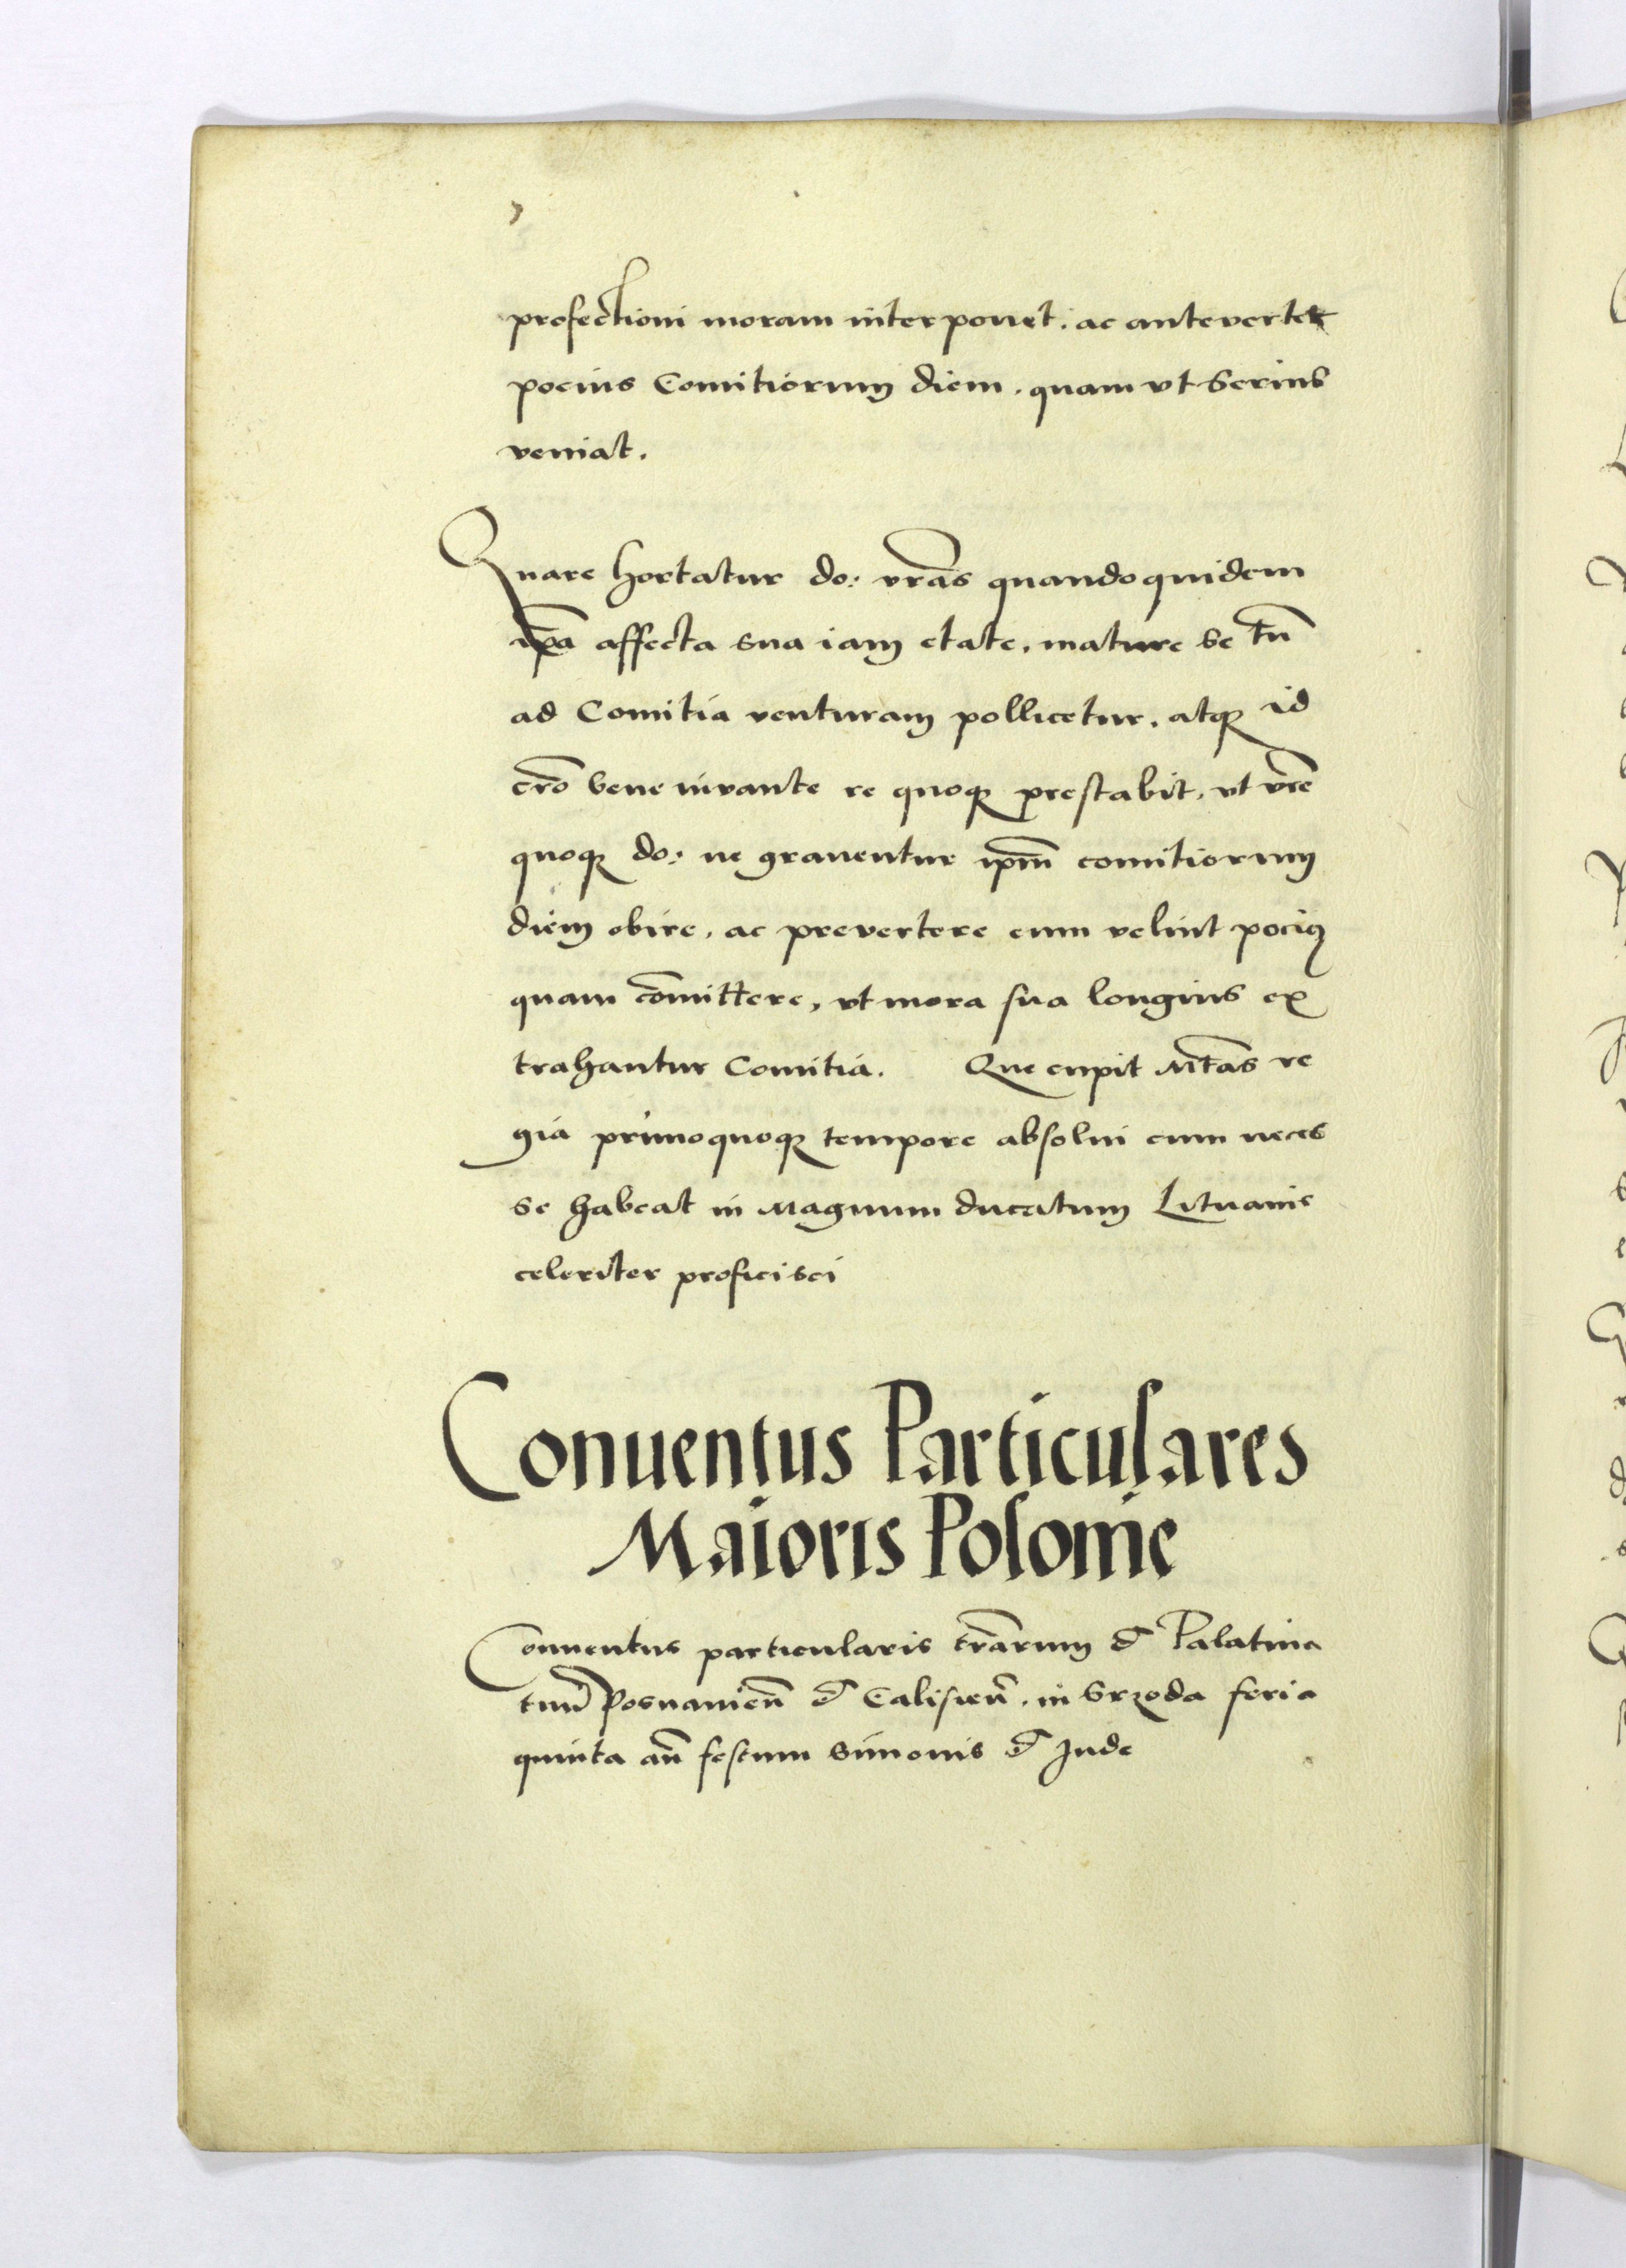 profectioni moram interponet. ac antevertet
pocius Comitiorum diem. quam vt serius
veniat.
Quare hortatur do: vr̃as quandoquidem
ip̃a affecta sua iam etate. mature se tñ
ad Comitia venturam pollicetur. atqꝫ id
deo bene iuvante re quoqꝫ prestabit. vt vr̃e
quoqꝫ do: ne graventur ip̃m comitiorum
diem obire. ac prevertere eum velint pociꝰ
quam com̃ittere, vt mora sua longius ex
trahantur Comitia. Que cupit Mt̃as re
gia primo quoqꝫ tempore absolui cum neces
se habeat in Magnum ducatum Lituanie
celeriter proficisci
Conuentus Particulares
Maioris Polonie
Conuentus particularis tr̃arum & Palatina
tuũ Posnanieñ & Calisieñ. in Srzoda feria
quinta añ festum Simonis & Jude